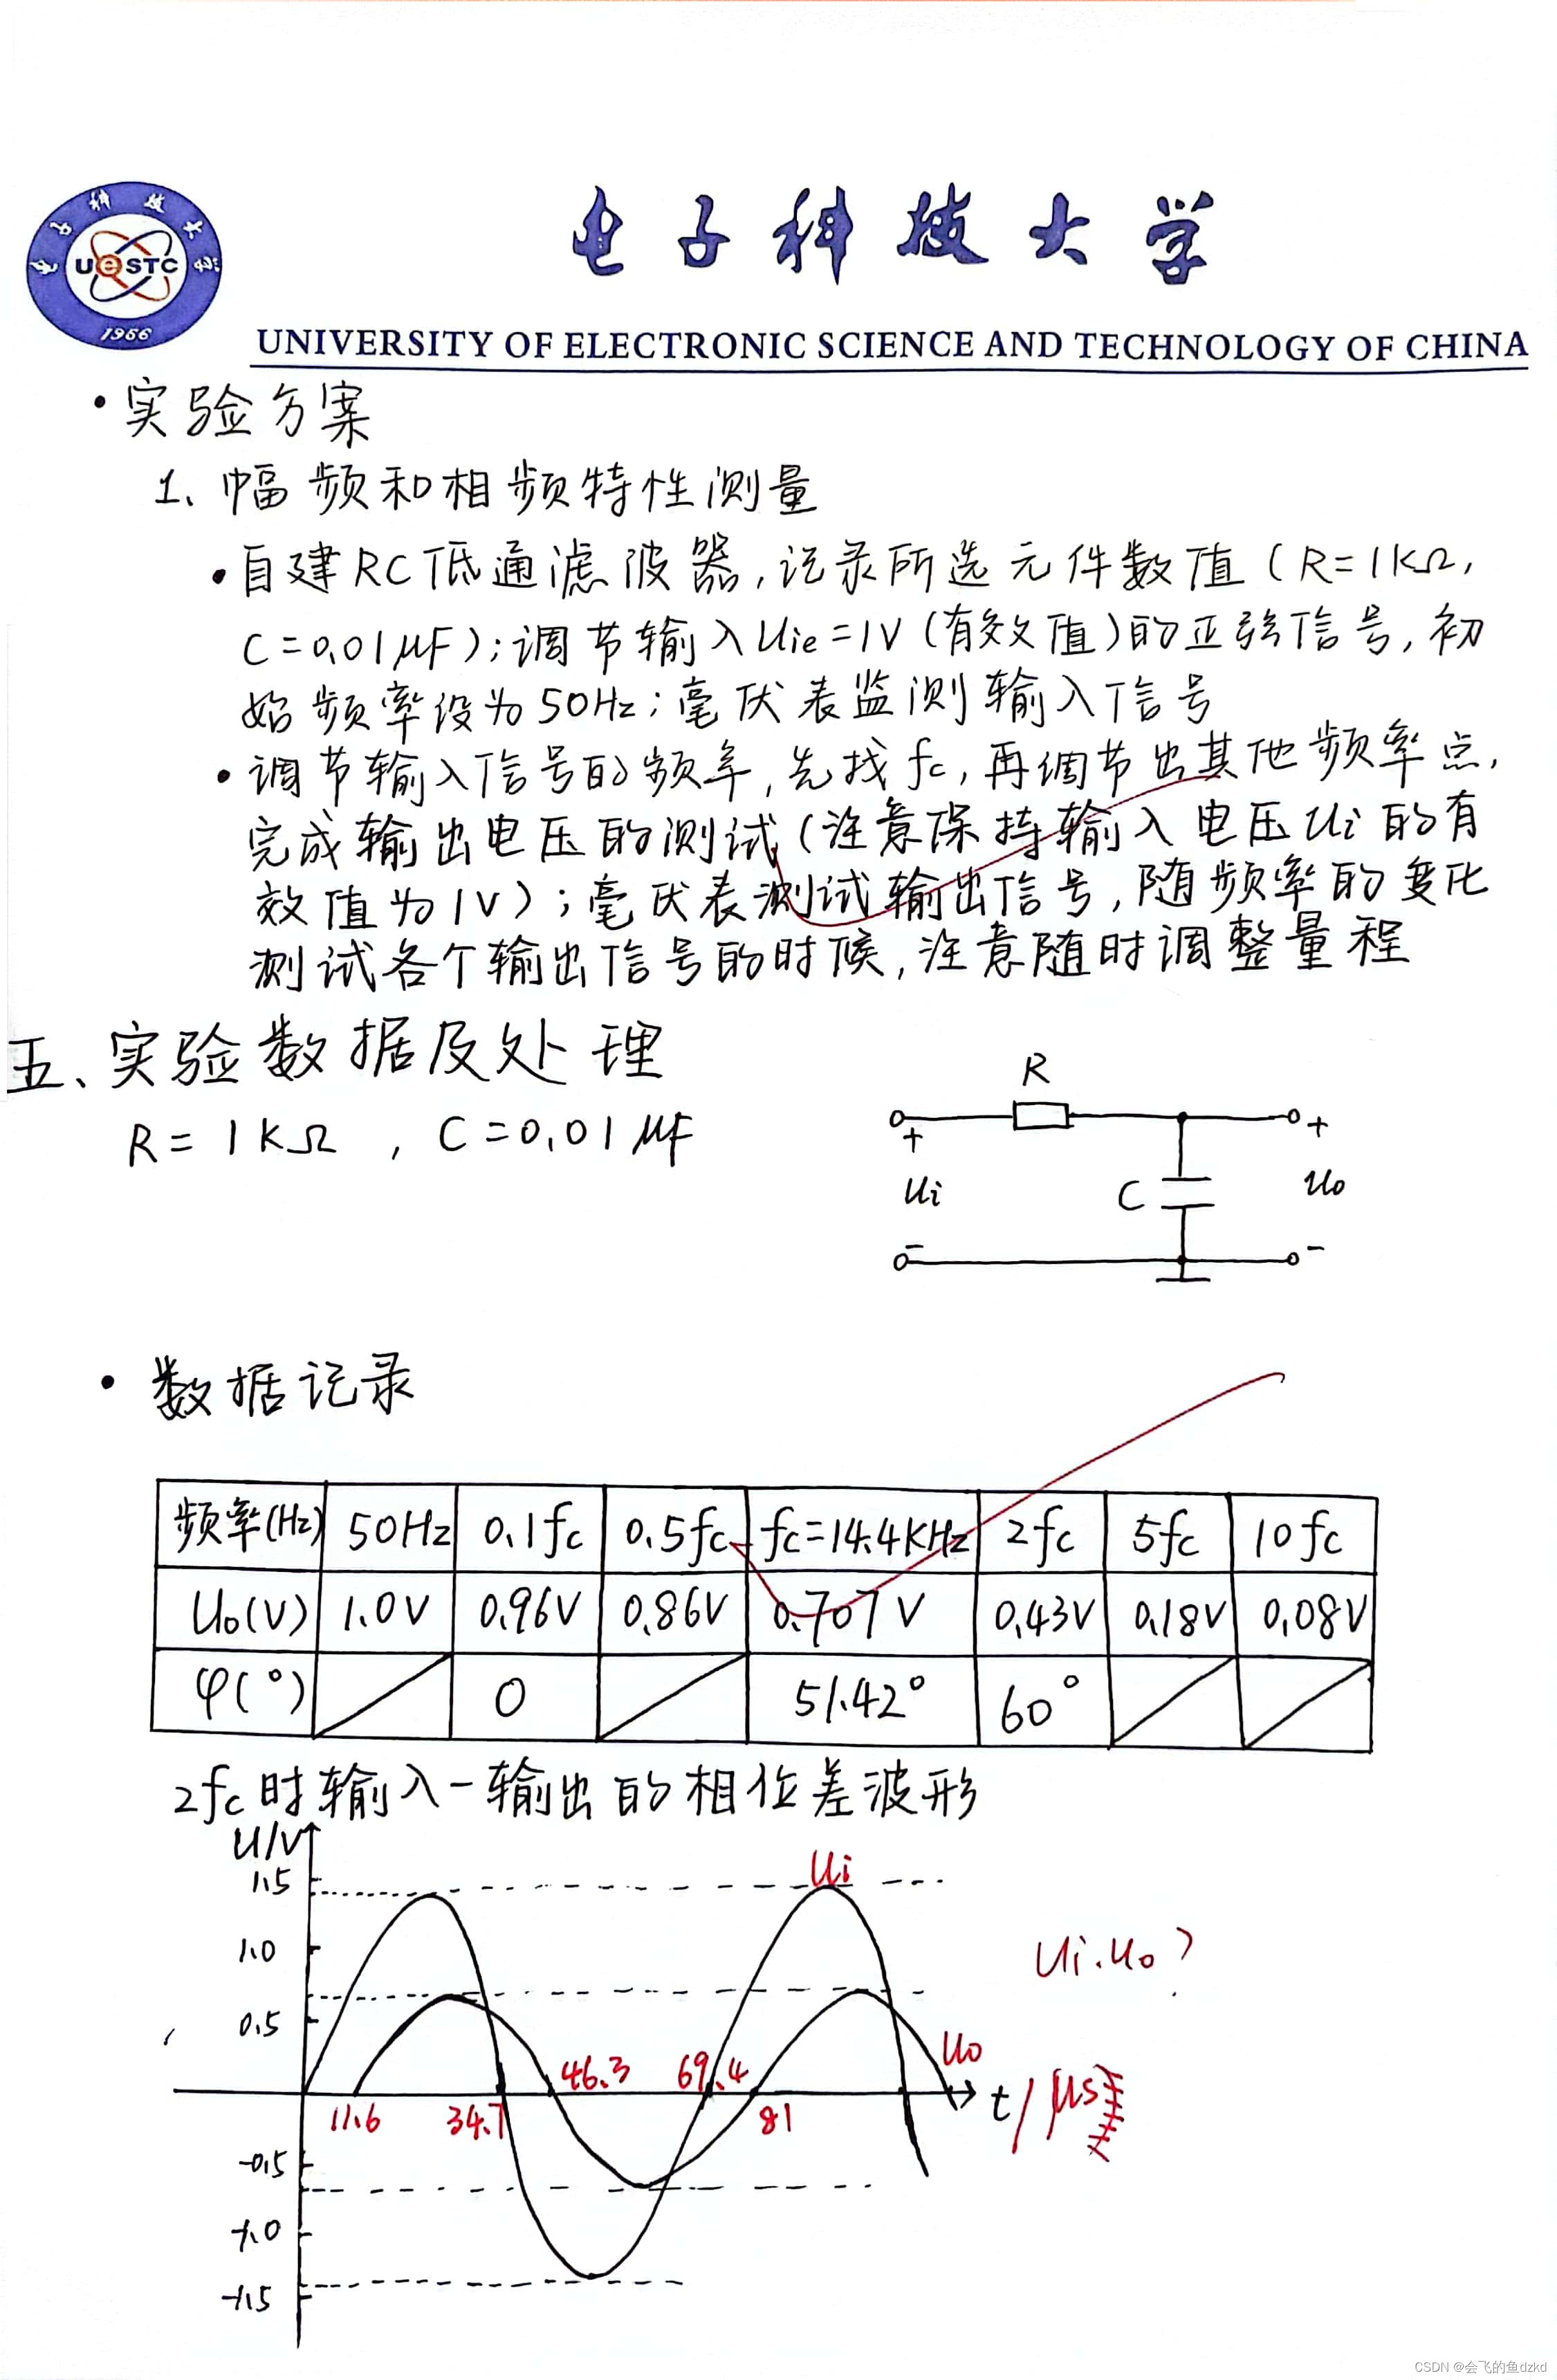 电子科技大学
电子科技大学
UESTC
1956
UNIVERSITY OF ELECTRONIC SCIENCE AND TECHNOLOGY OF CHINA
·实验方案
1、幅频和相频特性测量
·自建RC低通滤波器,记录所选元件数值(R=1KΩ,
C=0.01μF);调节输入Uie=1V(有效值)的正弦信号,初
始频率设为50Hz;毫伏表监测输入信号
·调节输入信号的频率,先找fc,再调节出其他频率点,
完成输出电压的测试(注意保持输入电压Ui的有
效值为1V);毫伏表测试输出信号,随频率的变化
测试各个输出信号的时候,注意随时调整量程
五、实验数据及处理
R=1KΩ,C=0.01μF
R
+ +
Ui C Uo
- -
·数据记录
频率(Hz) 50Hz 0.1fc 0.5fc fc=14.4KHz 2fc 5fc 10fc
Uo(V) 1.0V 0.96V 0.86V 0.707V 0.43V 0.18V 0.08V
φ(°) 0 51.42° 60°
2fc时输入-输出的相位差波形
U/V
1.5
Ui
1.0
Ui.Uo?
0.5
Uo
46.3 69.4
t/μs
11.6 34.7 81
-0.5
-1.0
-1.5
CSDN @会飞的鱼dzkd